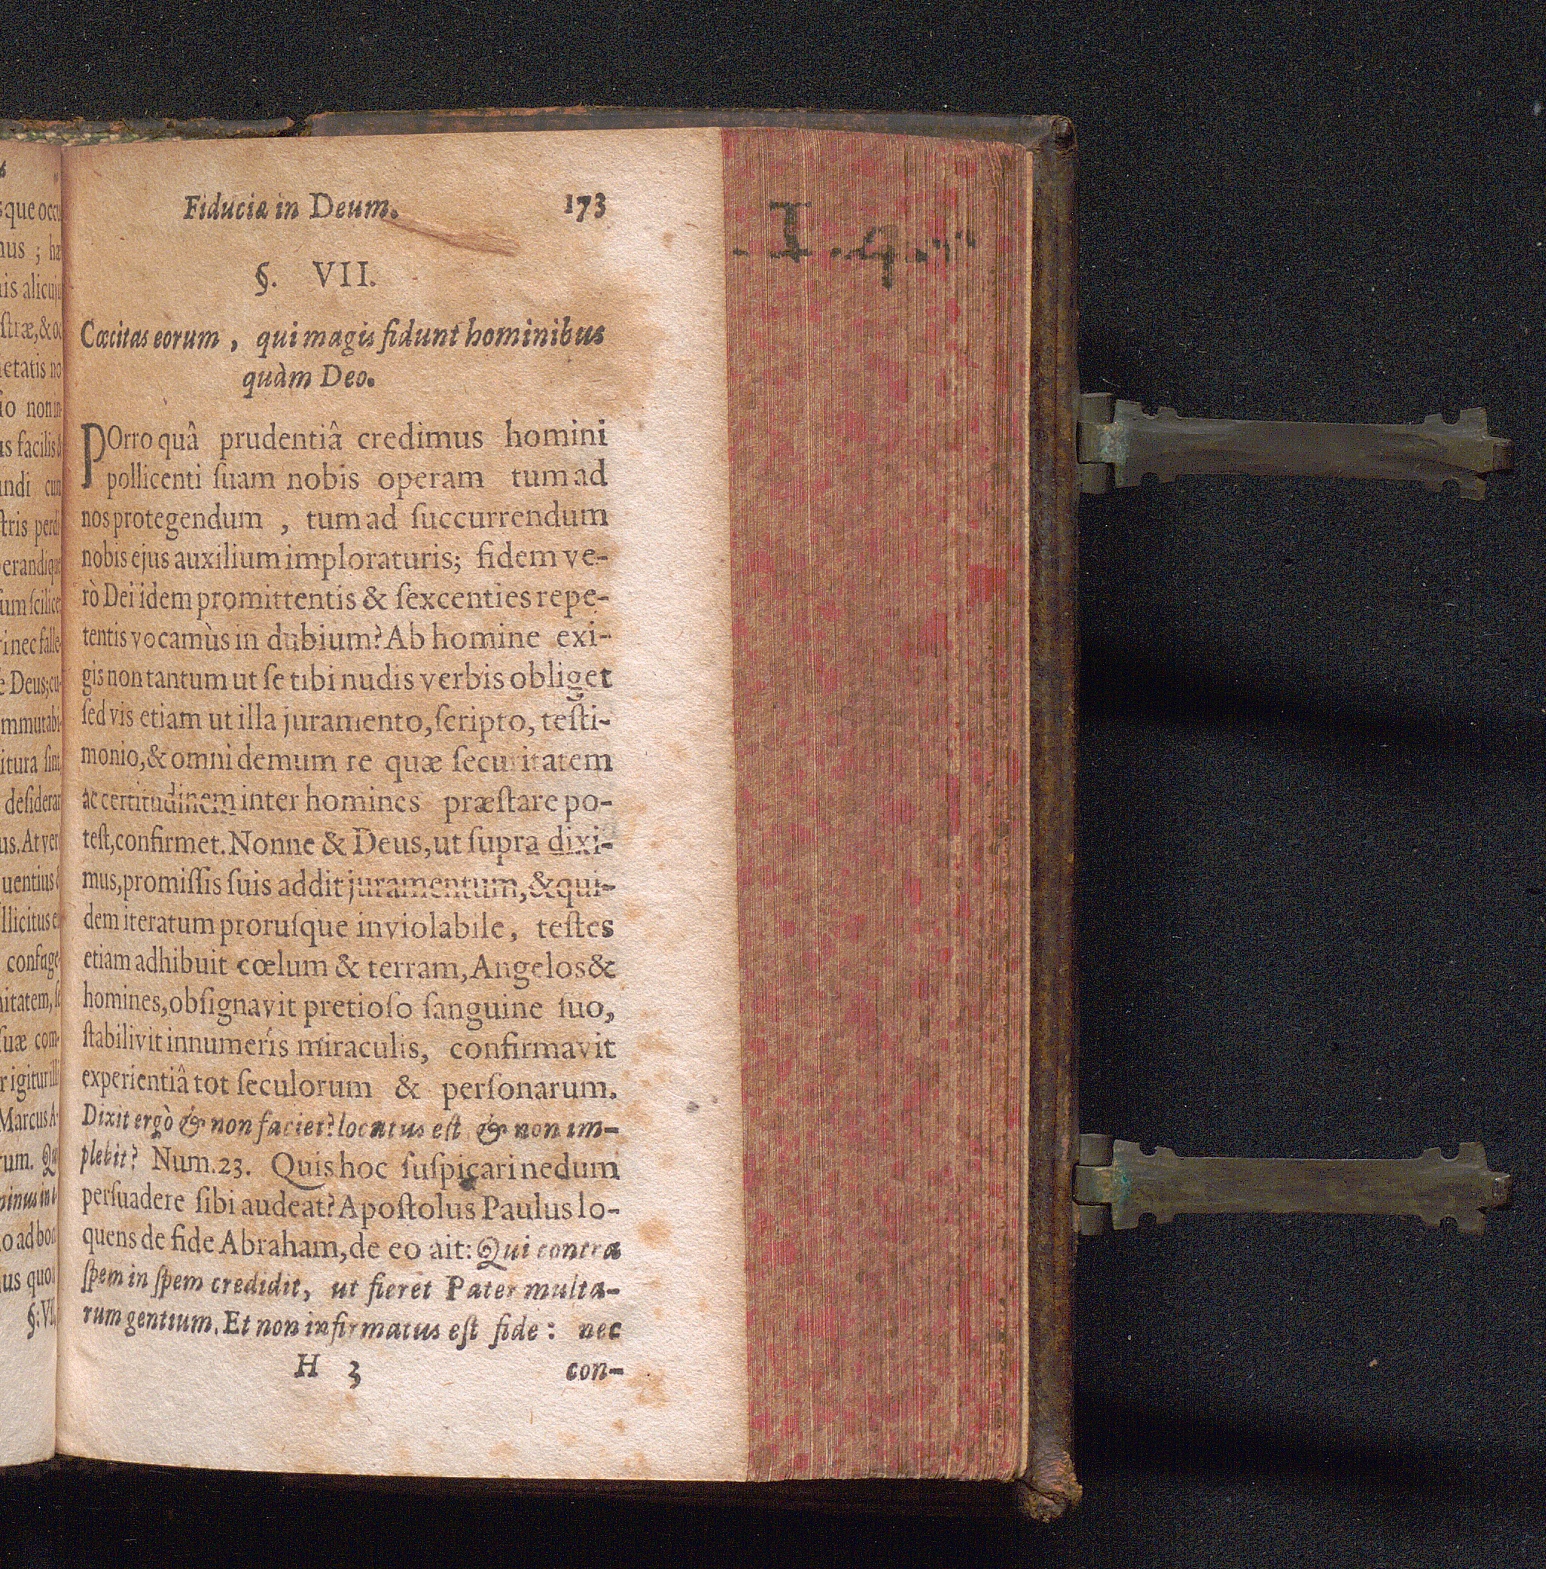 Fiducia in Deum. 173
§. VII.
Cæcitas eorum, qui magis fidunt hominibus
quàm Deo.
POrro quâ prudentiâ credimus homini
pollicenti ſuam nobis operam tum ad
nos protegendum, tum ad ſuccurrendum
nobis ejus auxilium imploraturis; fidem ve-
rò Dei idem promittentis & ſexcenties repe-
tentis vocamùs in dubium? Ab homine exi-
gis non tantum ut ſe tibi nudis verbis obliget
ſed vis etiam ut illa juramento, ſcripto, teſti-
monio, & omni demum re quæ ſecuritatem
ac certitudinem inter homines præſtare po-
teſt, confirmet. Nonne & Deus, ut ſupra dixi-
mus, promiſſis ſuis addit juramentum, & qui-
dem iteratum proruſque inviolabile, teſtes
etiam adhibuit cœlum & terram, Angelos &
homines, obſignavit pretioſo ſanguine ſuo,
ſtabilivit innumeris miraculis, confirmavit
experientiâ tot ſeculorum & perſonarum.
Dixit ergò & non faciet? locutus eſt & non im-
plebit? Num. 23. Quis hoc ſuſpicari nedum
perſuadere ſibi audeat? Apoſtolus Paulus lo-
quens de fide Abraham, de eo ait: Qui contra
ſpem in ſpem credidit, ut fieret Pater multa-
rum gentium. Et non infirmatus eſt fide: nec
H 3 con-